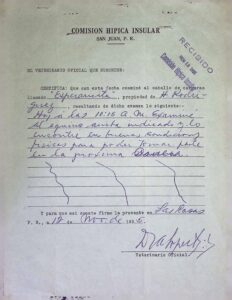 COMISION HIPICA INSULAR
SAN JUAN, P. R.
RECIBIDO
Comisión Hípica Insular
EL VETERINARIO OFICIAL QUE SUSCRIBE:
CERTIFICA: Que en esta fecha examiné al caballo de carreras
llamado "Esperancita", propiedad de A. Rodrí-
guez, resultando de dicho examen lo siguiente:
Hoy a las 10:15 A.M. Examiné
el equino arriba indicado y lo
encontré en buenas condiciones
físicas para poder tomar parte
en la próxima carrera.
Y para que así conste firmo la presente en Las Casas
P. R., de Nov. de 19
Veterinario Oficial